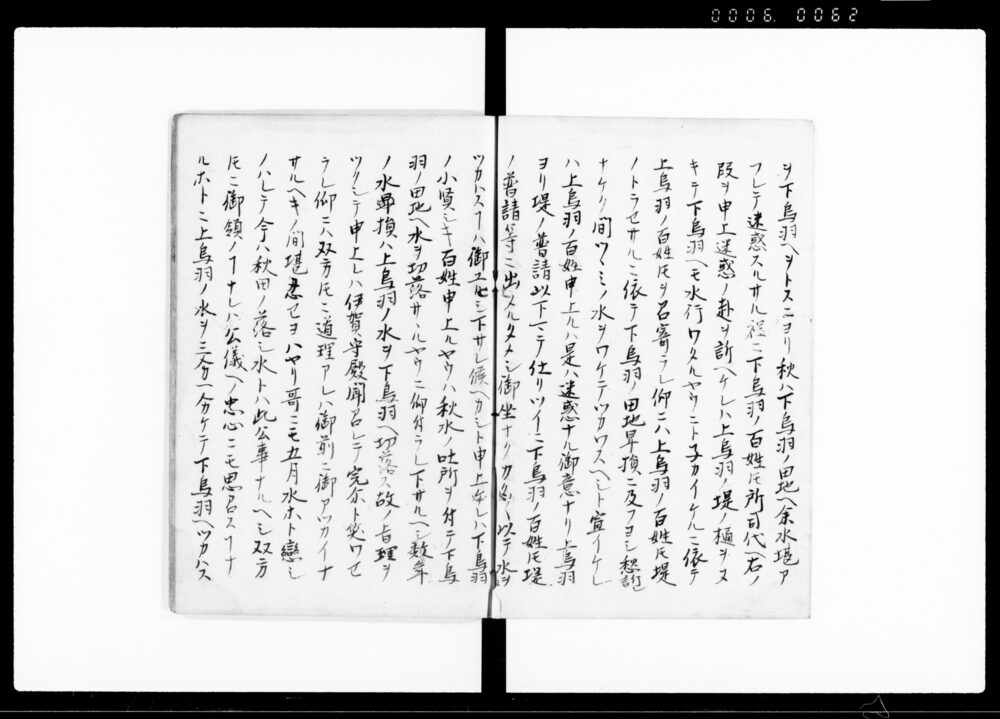 0006. 0062
ヲ下鳥羽ヘヲトスニヨリ秋ハ下鳥羽ノ田地ヘ余水堪ア
フレテ迷惑スルサル程ニ下鳥羽ノ百姓𪜈所司代ヘ右ノ
段ヲ申上迷惑ノ赴ヲ訴ヘケレハ上鳥羽ノ堤ノ樋ヲヌ
キテ下鳥羽ヘモ水行ワタルヤウニト子カイケルニ依テ
上鳥羽ノ百姓𪜈ヲ召寄ラレ仰ニハ上鳥羽ノ百姓𪜈堤
ノトラセサルニ依テ下鳥羽ノ田地旱損ニ及フヨシ愁訴
ナケリノ間ツヽミノ水ヲワケテツカワスヘシト宣イケレ
ハ上鳥羽ノ百姓申上ルハ是ハ迷惑ナル御意ナリ上鳥羽
ヨリ堤ノ普請以下マテ仕リツイニ下鳥羽ノ百姓𪜈堤
ノ普請等ニ出シメルタメシ御坐ナク カ 以テ水ヲ
ツカハスヿハ御ユルシ下サレ候ヘカシト申上ケレハ下鳥羽
ノ小賢シキ百姓申上ルヤウハ秋水ノ吐所ヲ付テ下鳥
羽ノ田地ヘ水ヲ切落サヽルヤウニ仰付ラレ下サルヘシ数年
ノ水旱損ハ上鳥羽ノ水ヲ下鳥羽ヘ切落ス故ノ旨理ヲ
ツクシテ申上レハ伊賀守殿聞召レテ完尓ト笑ワセ
ラレ仰ニハ双方𪜈ニ道理アレハ御前ニ御アツカイナ
サルヘキノ間堪忍セヨハヤリ哥ニモ五月水ホト戀シ
ノハレテ今ハ秋田ノ落シ水トハ此公事ナルヘシ双方
𪜈ニ御領ノヿナレハ公儀ヘノ忠心ニモ思召スヿナ
ルホトニ上鳥羽ノ水ヲ三分一分ケテ下鳥羽ヘツカハス